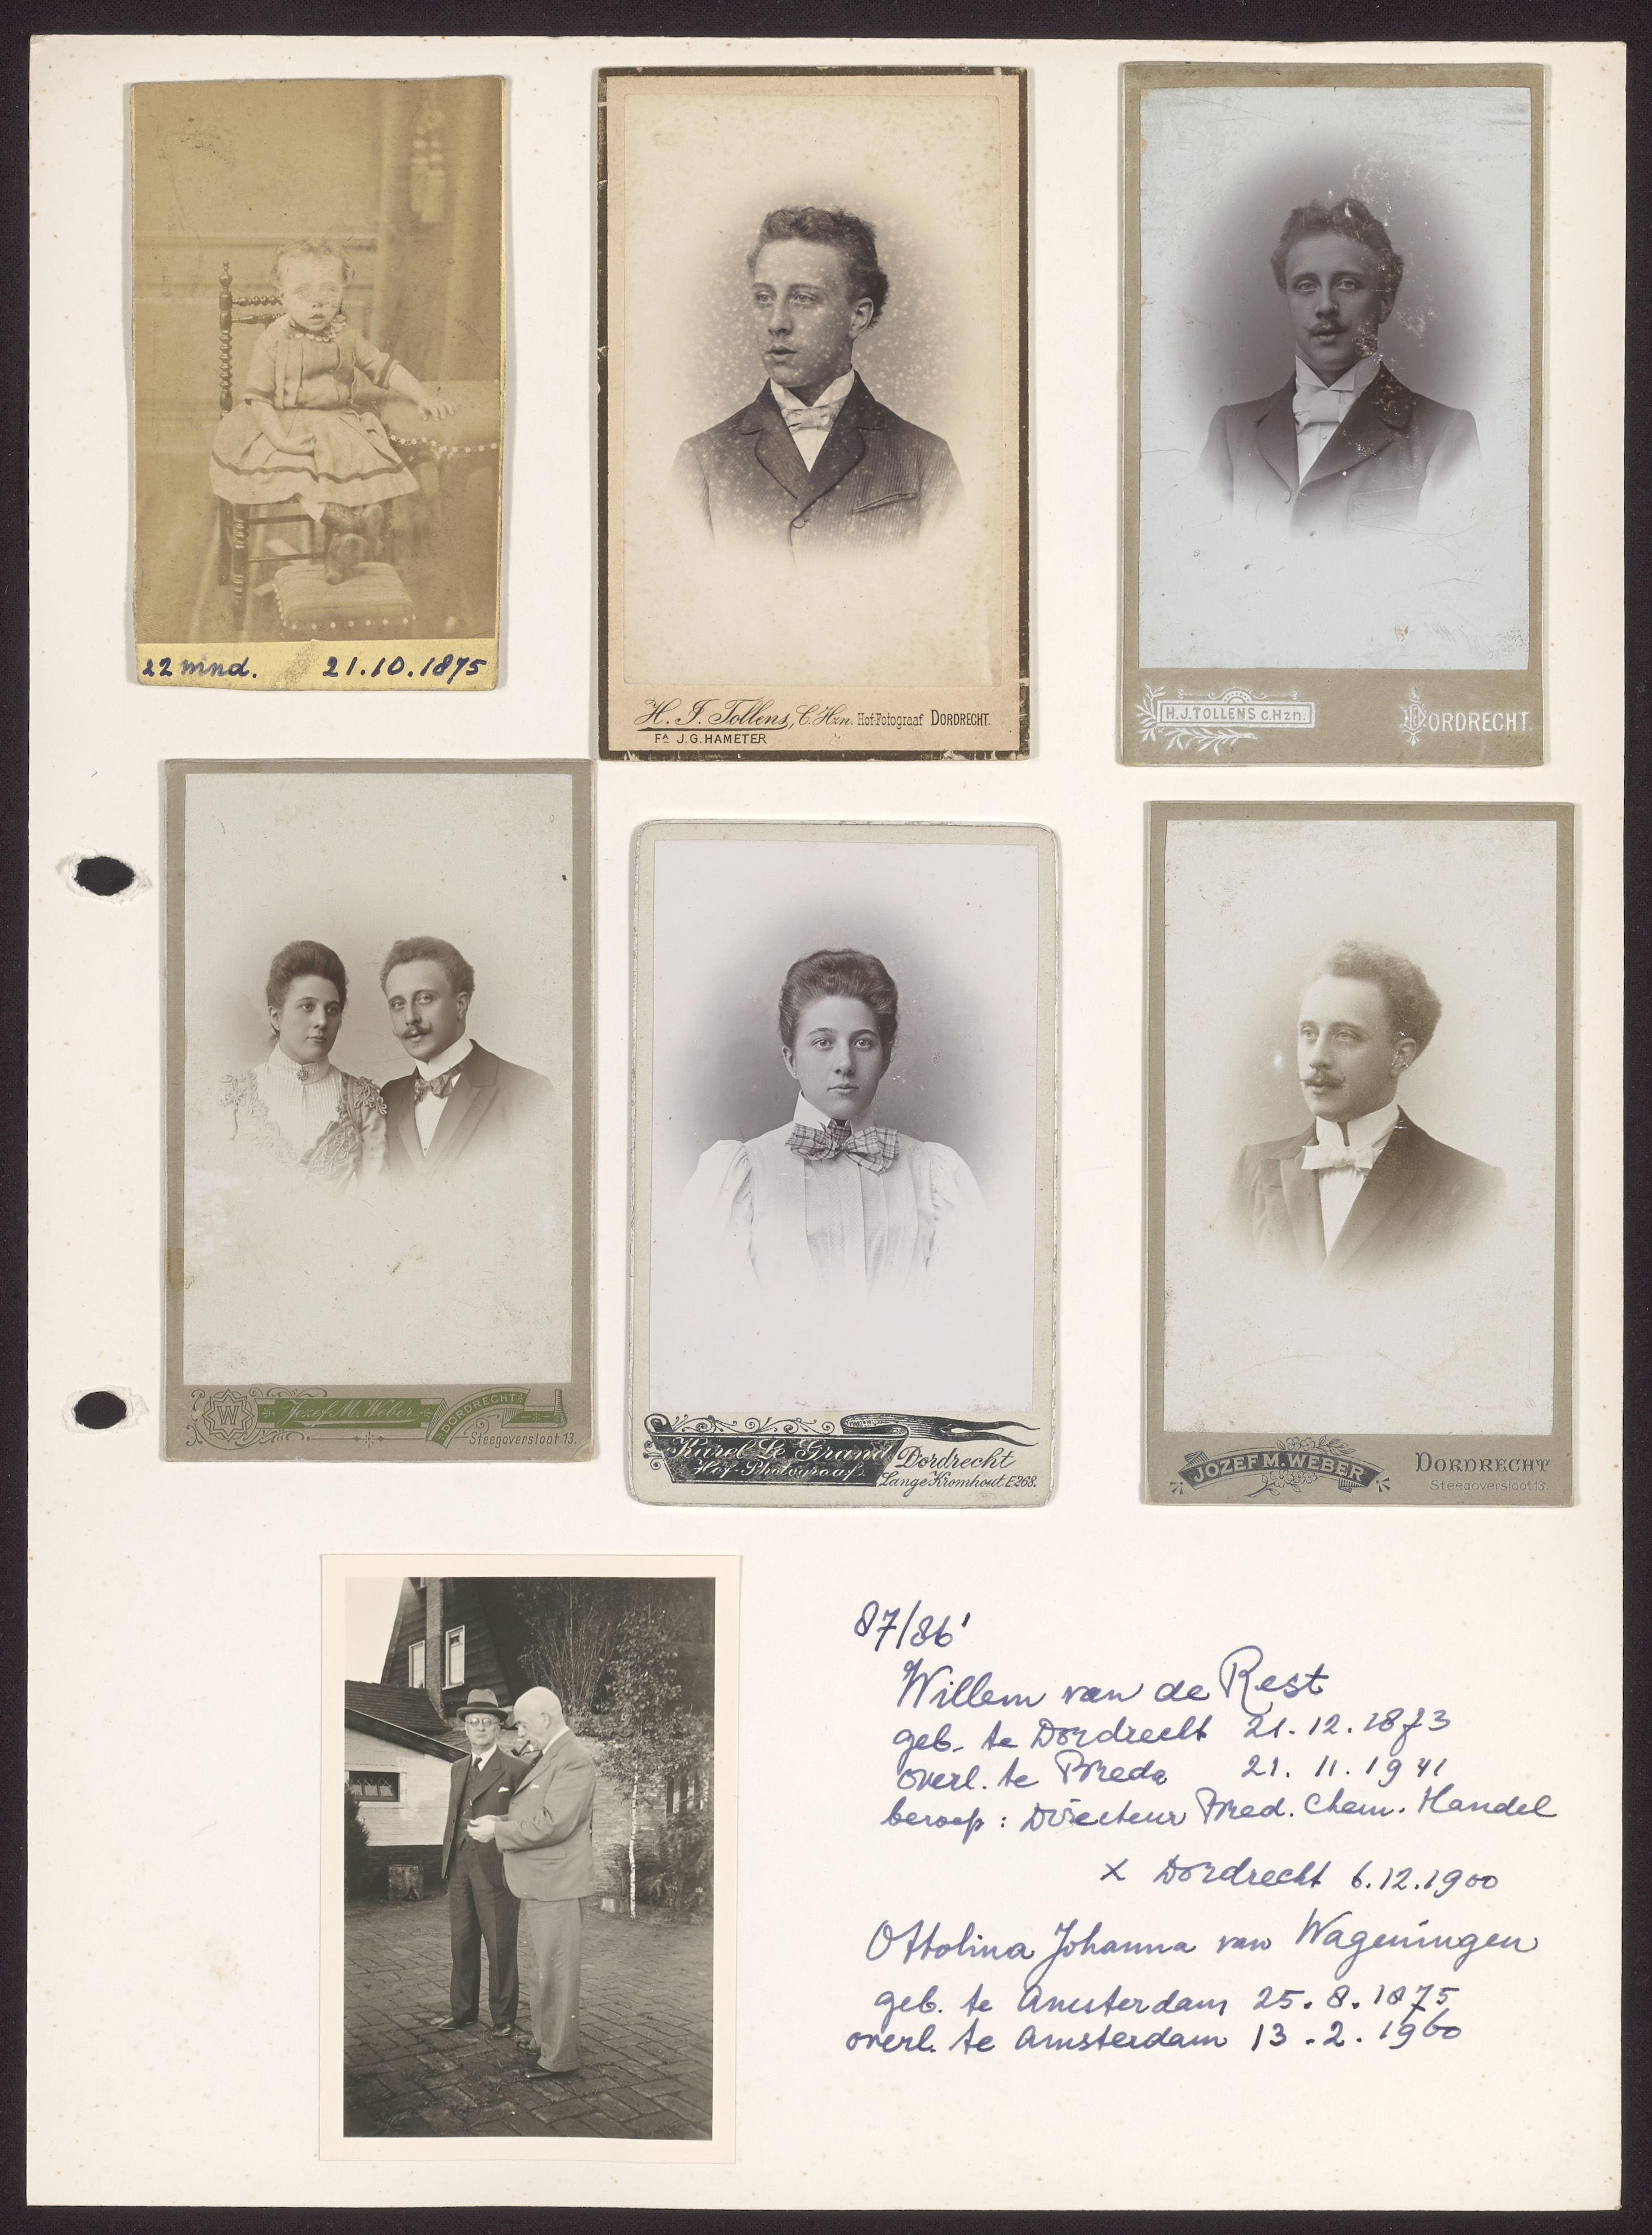 22 mnd. 21.10.1875
H. J. Tollens, C.Hzn. Hof-Fotograaf DORDRECHT.
Fa J.G.HAMETER
H.J.TOLLENS C.Hzn. DORDRECHT
W Jozef M. Weber DORDRECHT
Steegoversloot 13.
Karel Le Grand Dordrecht
Hof-Photograaf. Lange Kromhout E268.
JOZEF M. WEBER DORDRECHT
Steegoversloot 13.
87/86'
Willem van de Rest
geb. te Dordrecht 21.12.1873
overl. te Breda 21.11.1941
beroep: Directeur Bred. Chem. Handel
x Dordrecht 6.12.1900
Ottolina Johanna van Wageningen
geb. te Amsterdam 25.8.1875
overl. te Amsterdam 13.2.1960